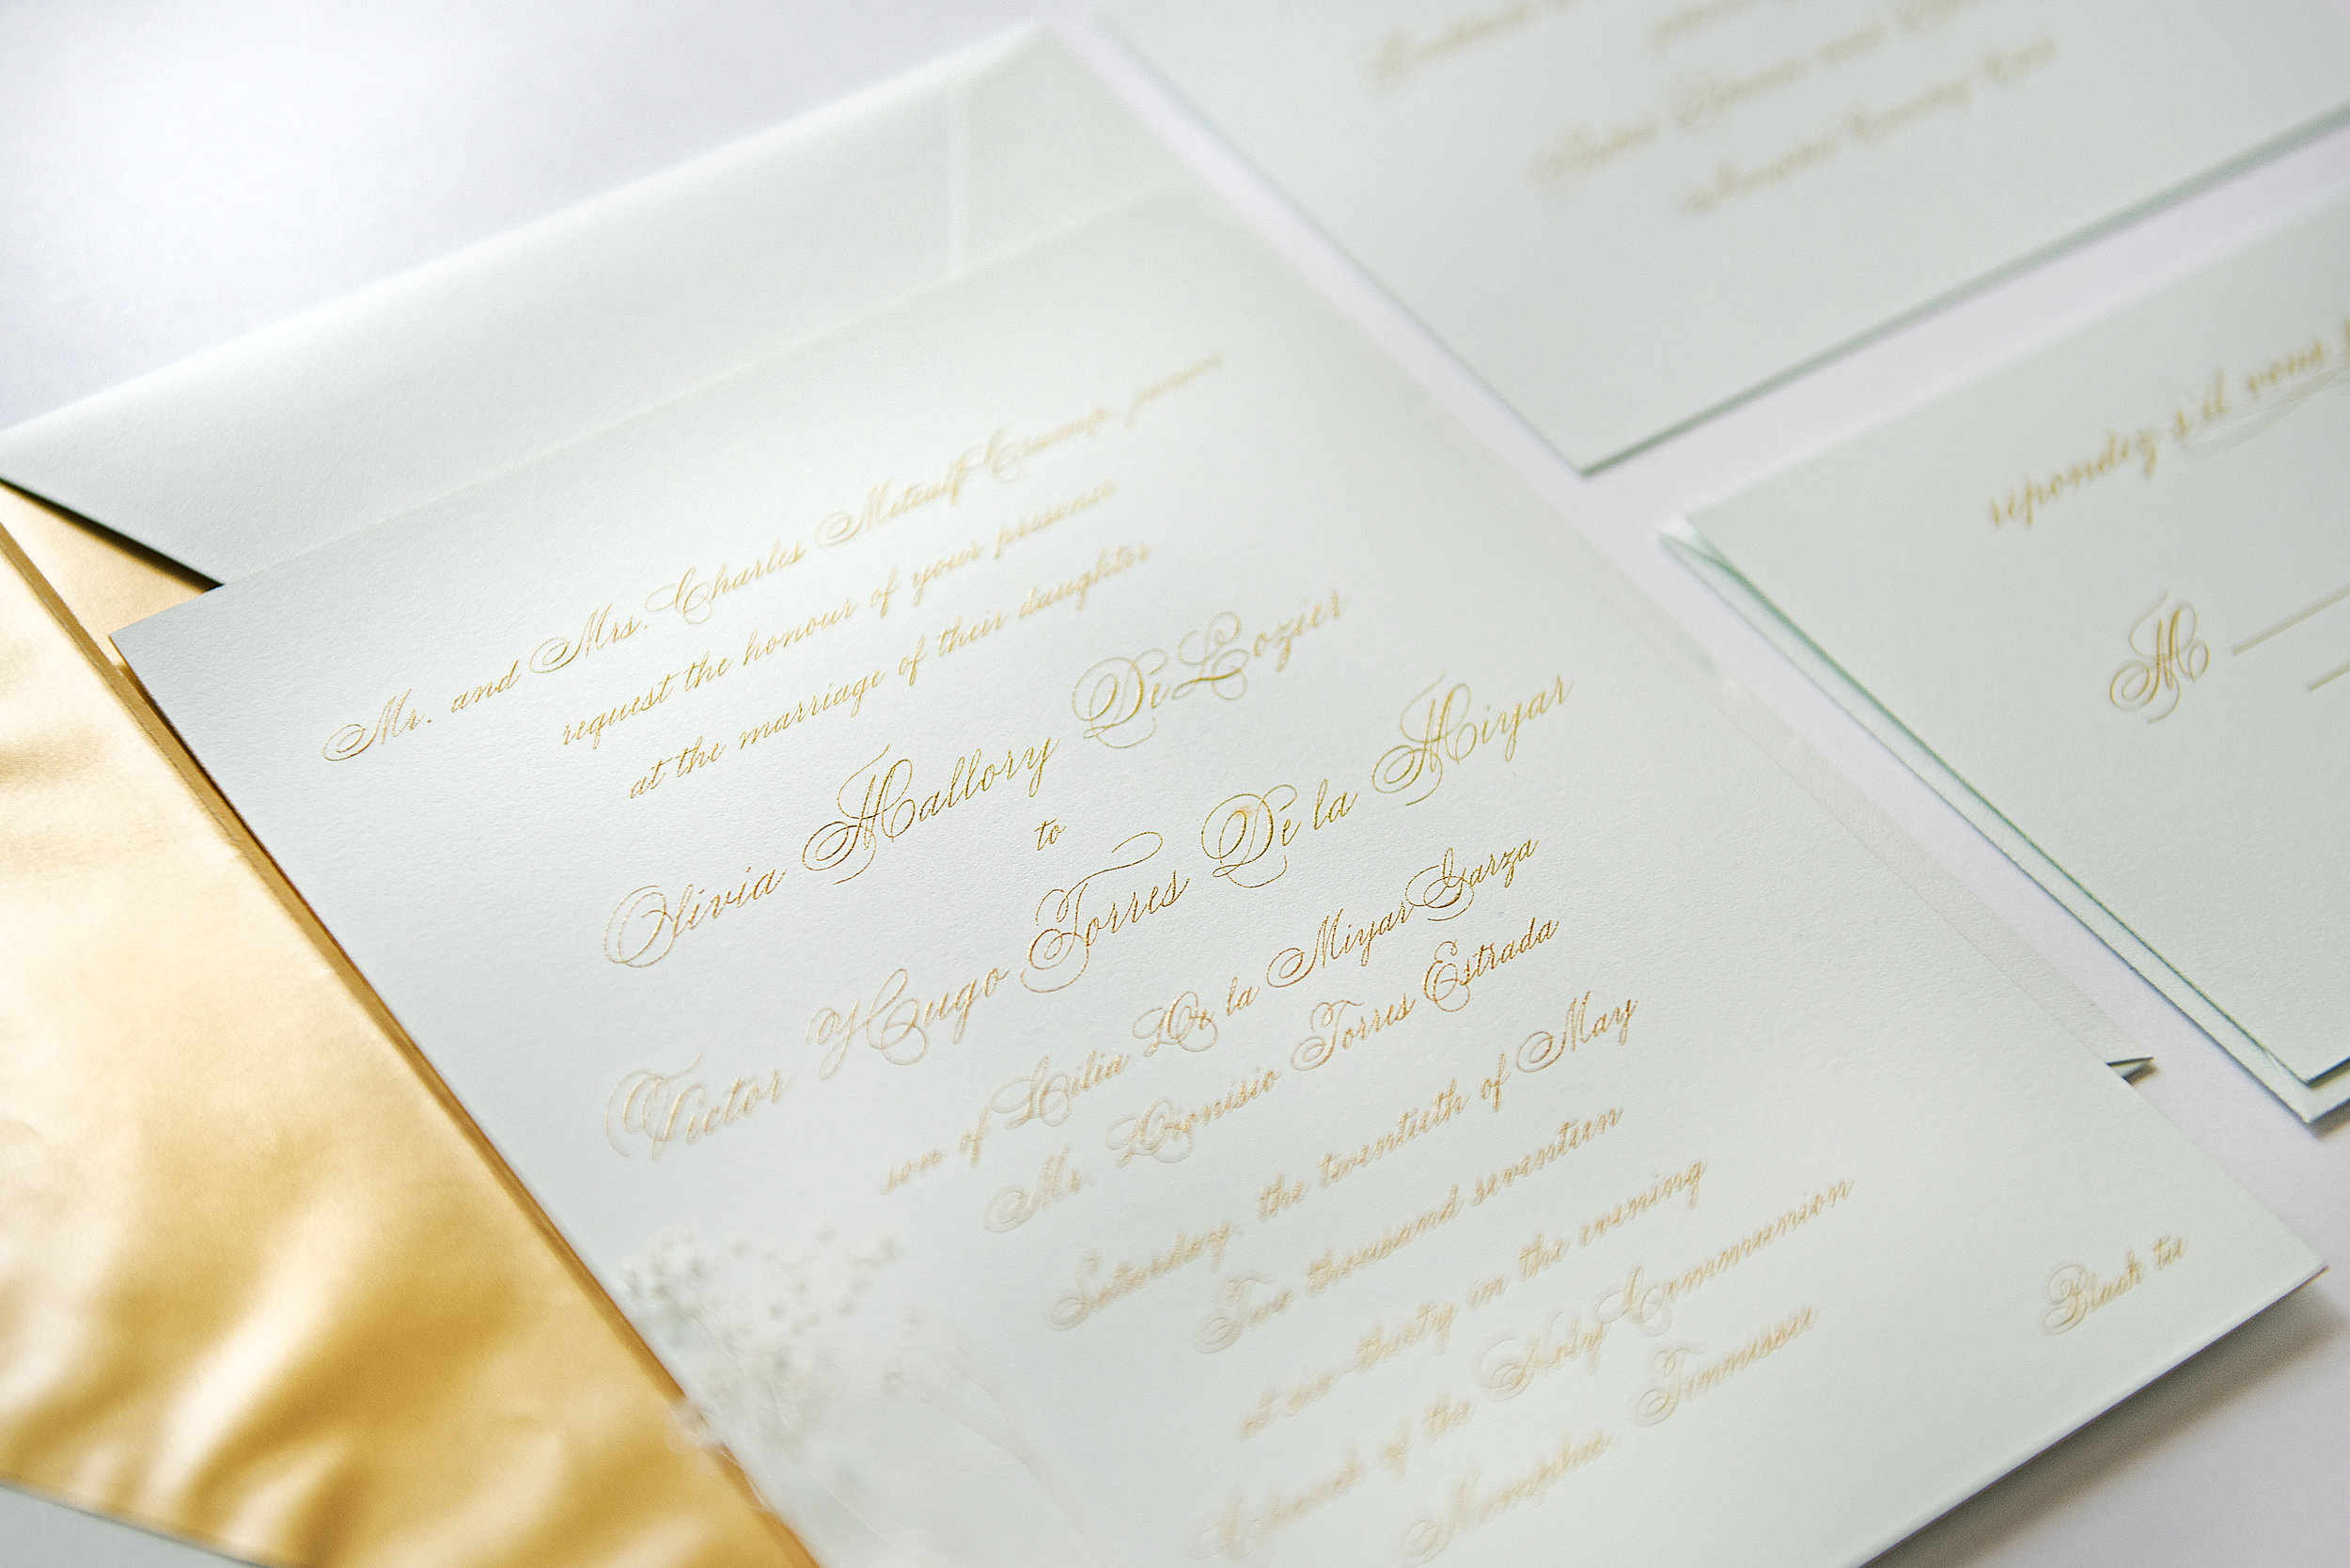 Mr. and Mrs. Charles Metcalf Crump, junior
request the honour of your presence
at the marriage of their daughter
Olivia Mallory DeLozier
to
Victor Hugo Torres De la Miyar
son of Lilia De la Miyar Garza
Mr. Dionisio Torres Estrada
Saturday, the twentieth of May
Two thousand seventeen
at six-thirty in the evening
Church of the Holy Communion
Memphis Tennessee
Black tie
répondez s'il vous
M